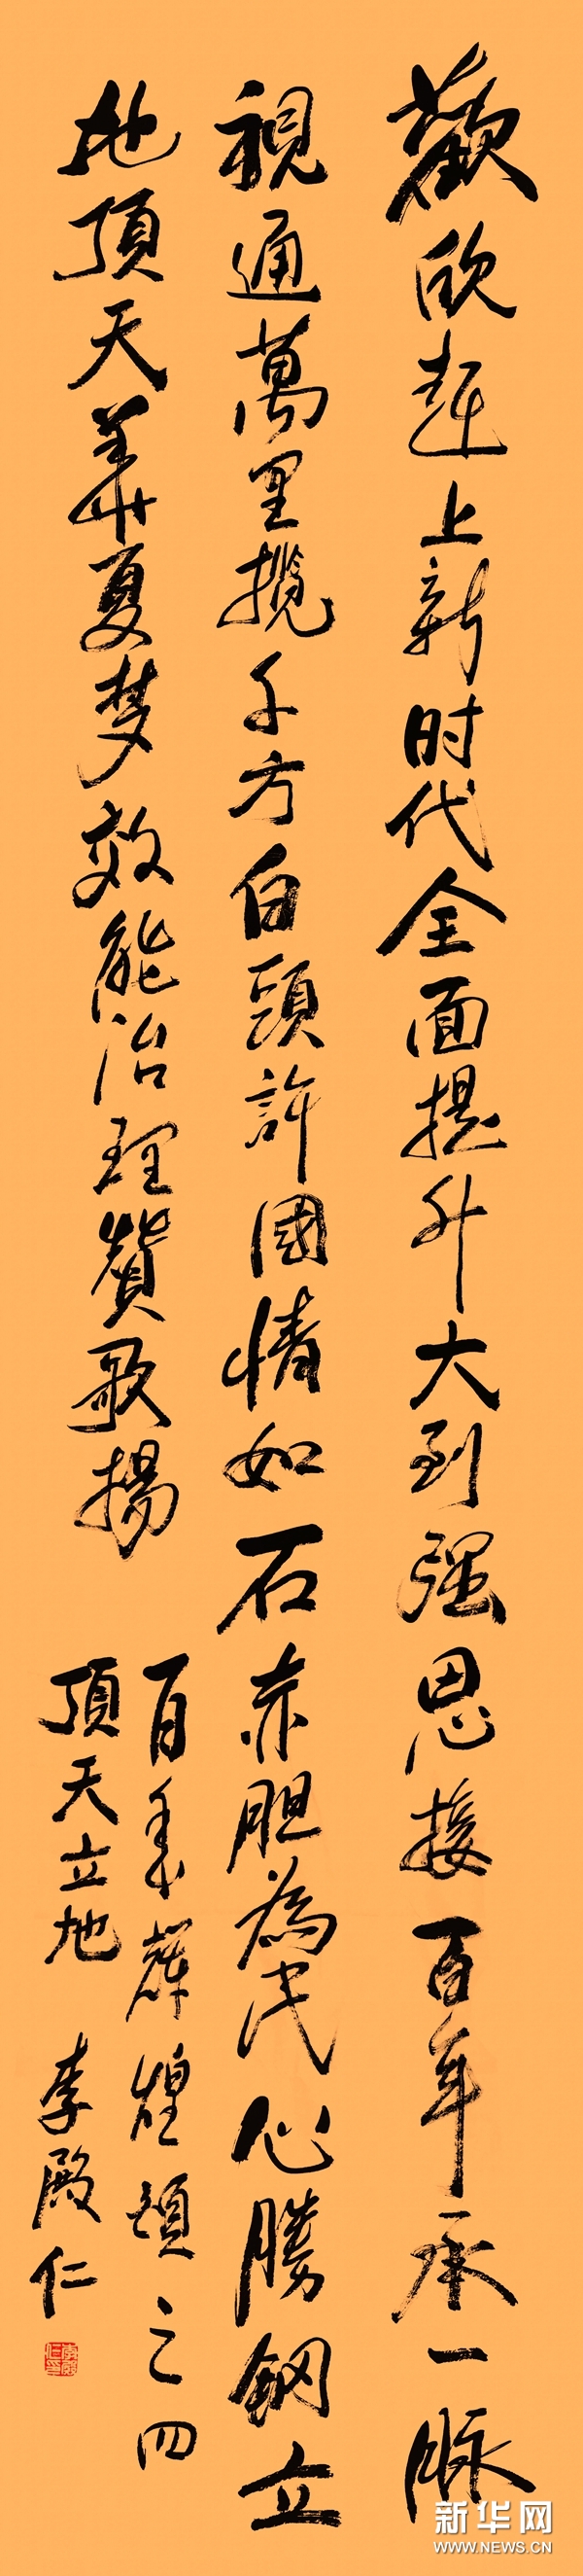 歡欣赶上新时代全面提升大到强思接百年承一脉
視通萬里攬千方白頭許國情如石赤胆為民心勝鋼立
地頂天華夏梦效能治理贊歌揚
百年辉煌頌之四
頂天立地 李殿仁
新华网
WWW.NEWS.CN